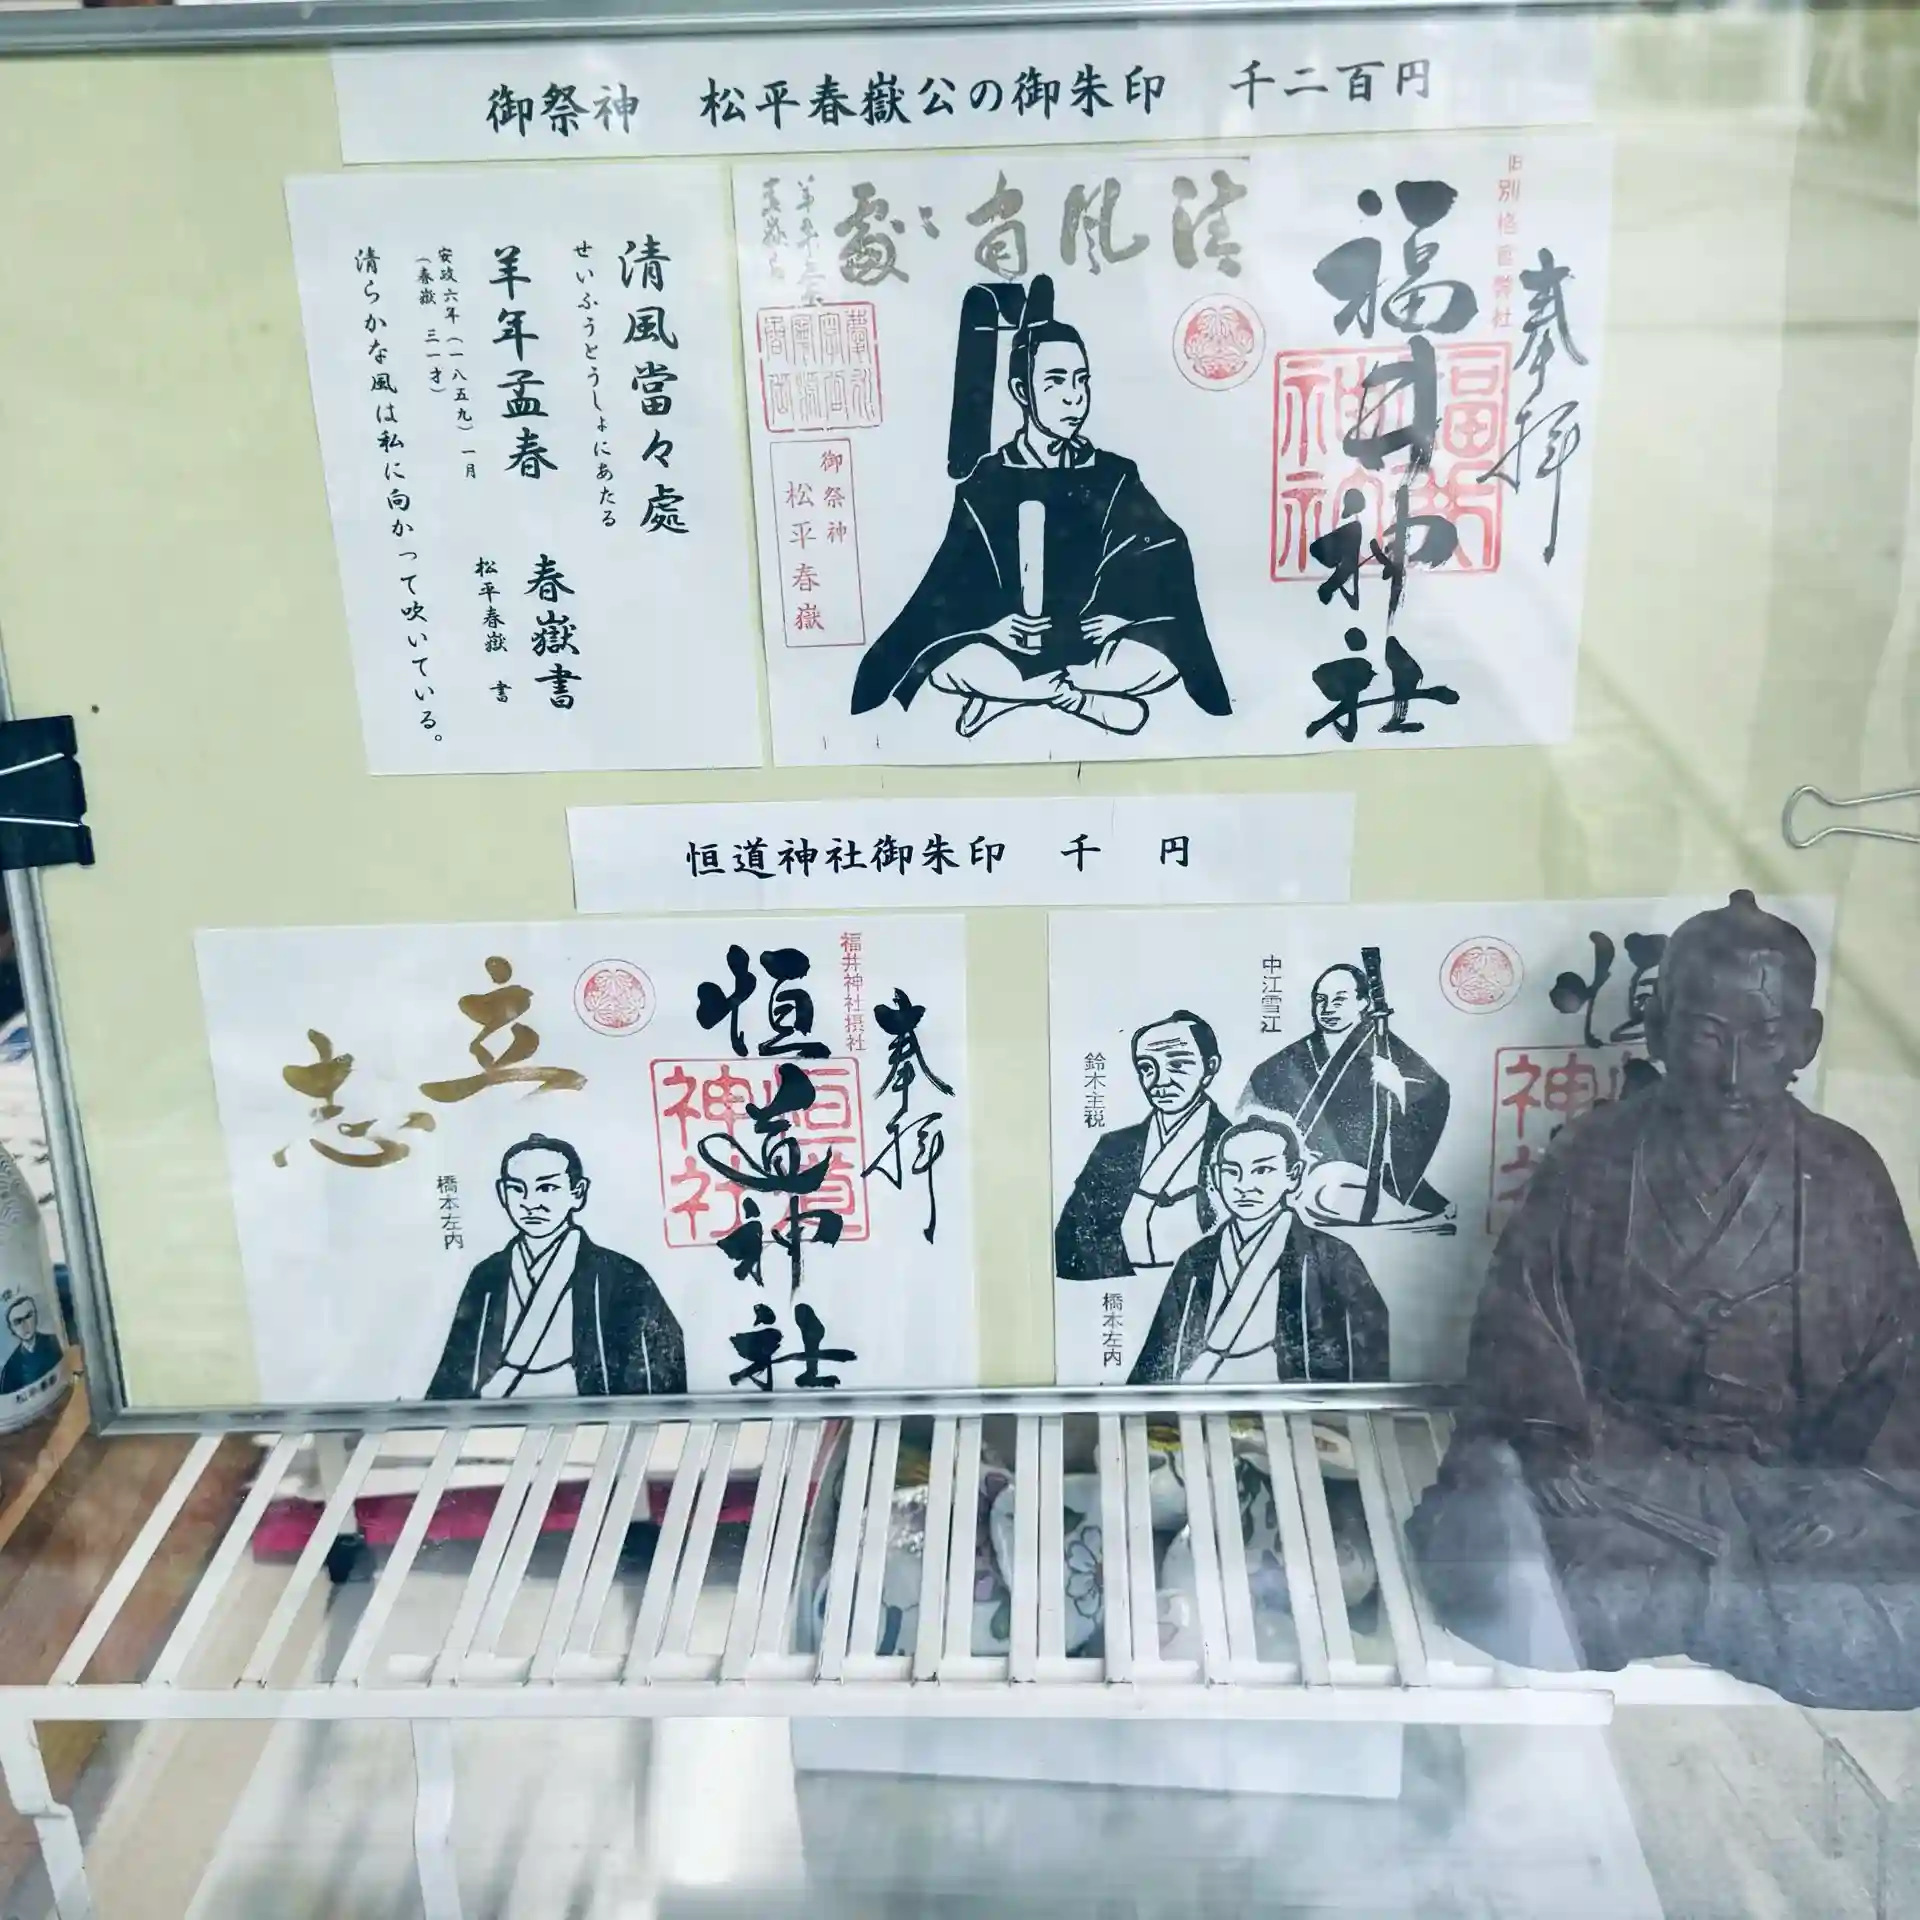 御祭神 松平春嶽公の御朱印 千二百円
旧別格官幣社
奉拝
福井神社
清風當々處
羊年孟春
春嶽書
御祭神
松平春嶽
清風當々處
せいふうとうしょにあたる
羊年孟春 春嶽書
安政六年(一八五九)一月 松平春嶽 書
(春嶽 三一才)
清らかな風は私に向かって吹いている。
恒道神社御朱印 千 円
奉拝
福井神社摂社
恒道神社
恒道神社
立志
橋本左内
恒
中江雪江
鈴木主税
橋本左内